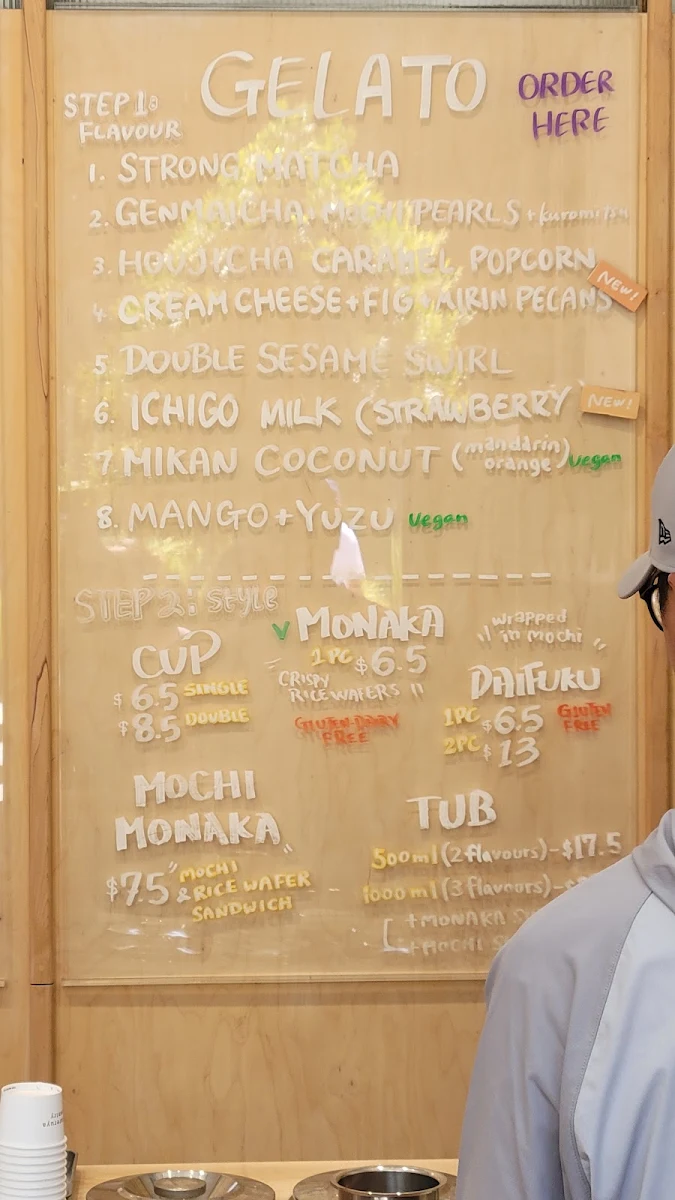 GELATO
ORDER
HERE
STEP 1:
FLAVOUR
1. STRONG MATCHA
2. GENMAICHA + MOCHI PEARLS + kuromitsu
3. HOUJICHA CARAMEL POPCORN
4. CREAM CHEESE + FIG + MIRIN PECANS NEW!
5 DOUBLE SESAME SWIRL
6. ICHIGO MILK (STRAWBERRY NEW!
7 MIKAN COCONUT (mandarin orange) vegan
8. MANGO + YUZU vegan
STEP 2: style
CUP
$6.5 SINGLE
$8.5 DOUBLE
V MONAKA
1PC $6.5
"CRISPY
RICE WAFERS"
GLUTEN-DAIRY
FREE
"wrapped
in mochi"
DAIFUKU
1PC $6.5 GLUTEN
FREE
2PC $13
MOCHI
MONAKA
$7.5 "MOCHI
& RICE WAFER
SANDWICH"
TUB
500ml (2 flavours) - $17.5
1000ml (3 flavours) -
[ + MONAKA
+ MOCHI